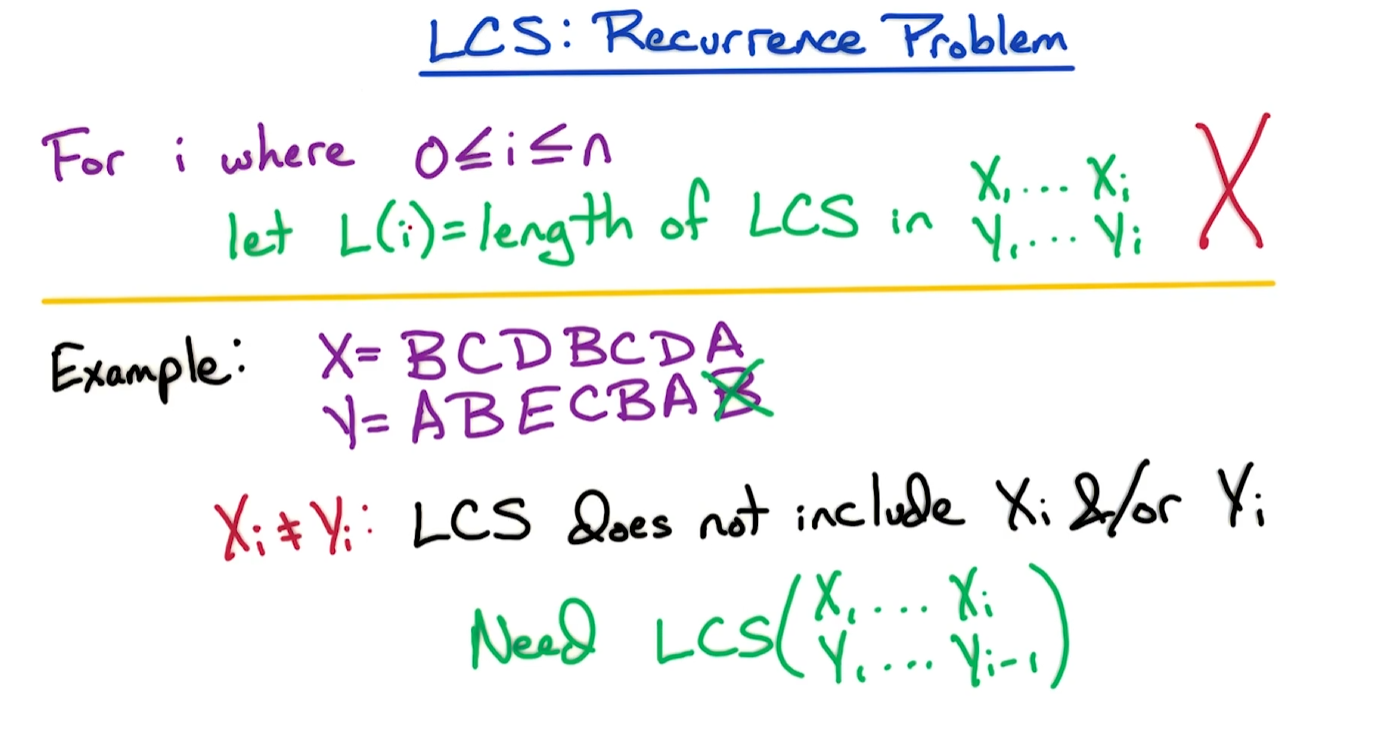 LCS: Recurrence Problem
For i where 0≤i≤n
let L(i)=length of LCS in X₁... Xᵢ
Y₁... Yᵢ
X
Example: X= BCDBCDA
Y= ABECBAB
Xᵢ≠Yᵢ: LCS does not include Xᵢ &/or Yᵢ
Need LCS(X₁.... Xᵢ
Y₁.... Yᵢ₋₁)